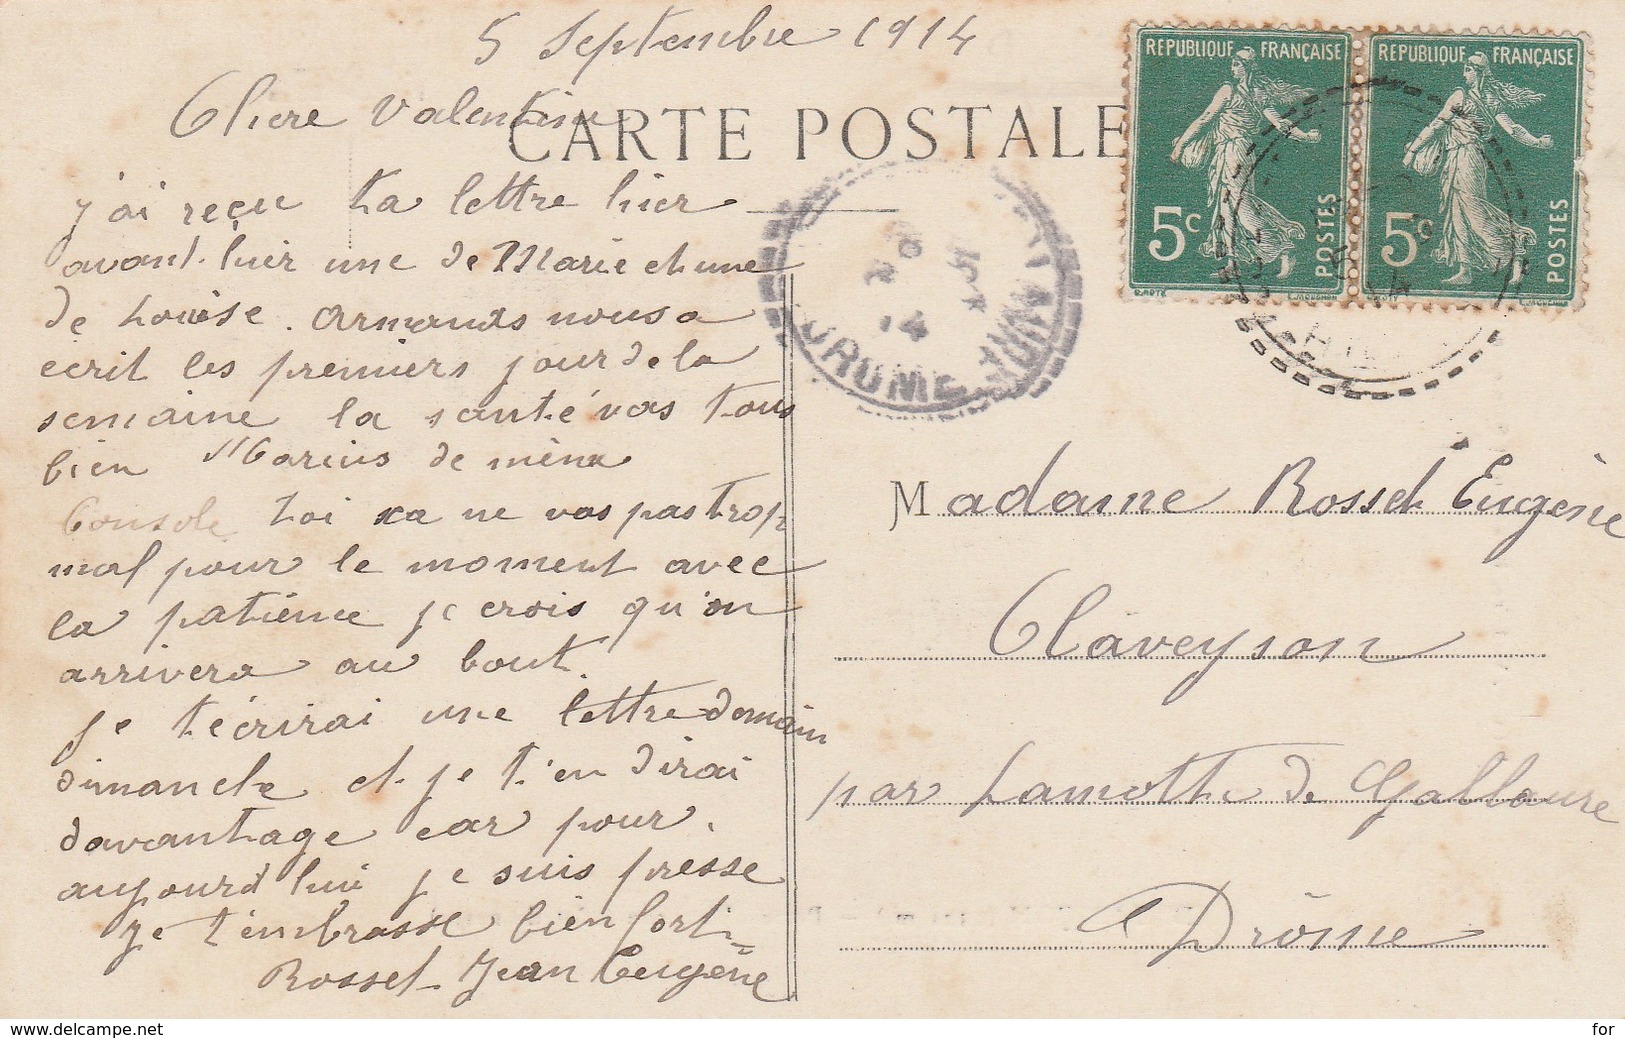 5 Septembre 1914
Chere Valentine
CARTE POSTALE
j'ai reçu ta lettre hier
avant-hier une de Marie et une
de Louise. Armands nous a
écrit les premiers jour de la
semaine la santé vas tous
bien Marius de mème
Console toi sa ne vas pas trop
mal pour le moment avec
la patience je crois qu'on
arrivera au bout
je t'écrirai une lettre demain
dimanche et je t'en dirai
davantage car pour
aujourd'hui je suis presse
je t'embrasse bien forti
Rosset Jean Eugène
REPUBLIQUE FRANÇAISE
5c
POSTES
REPUBLIQUE FRANÇAISE
5c
POSTES
DROME
14
Madame Rosset Eugène
Claveyson
par Lamothe de Gallaure
Drôme
www.delcampe.net
for